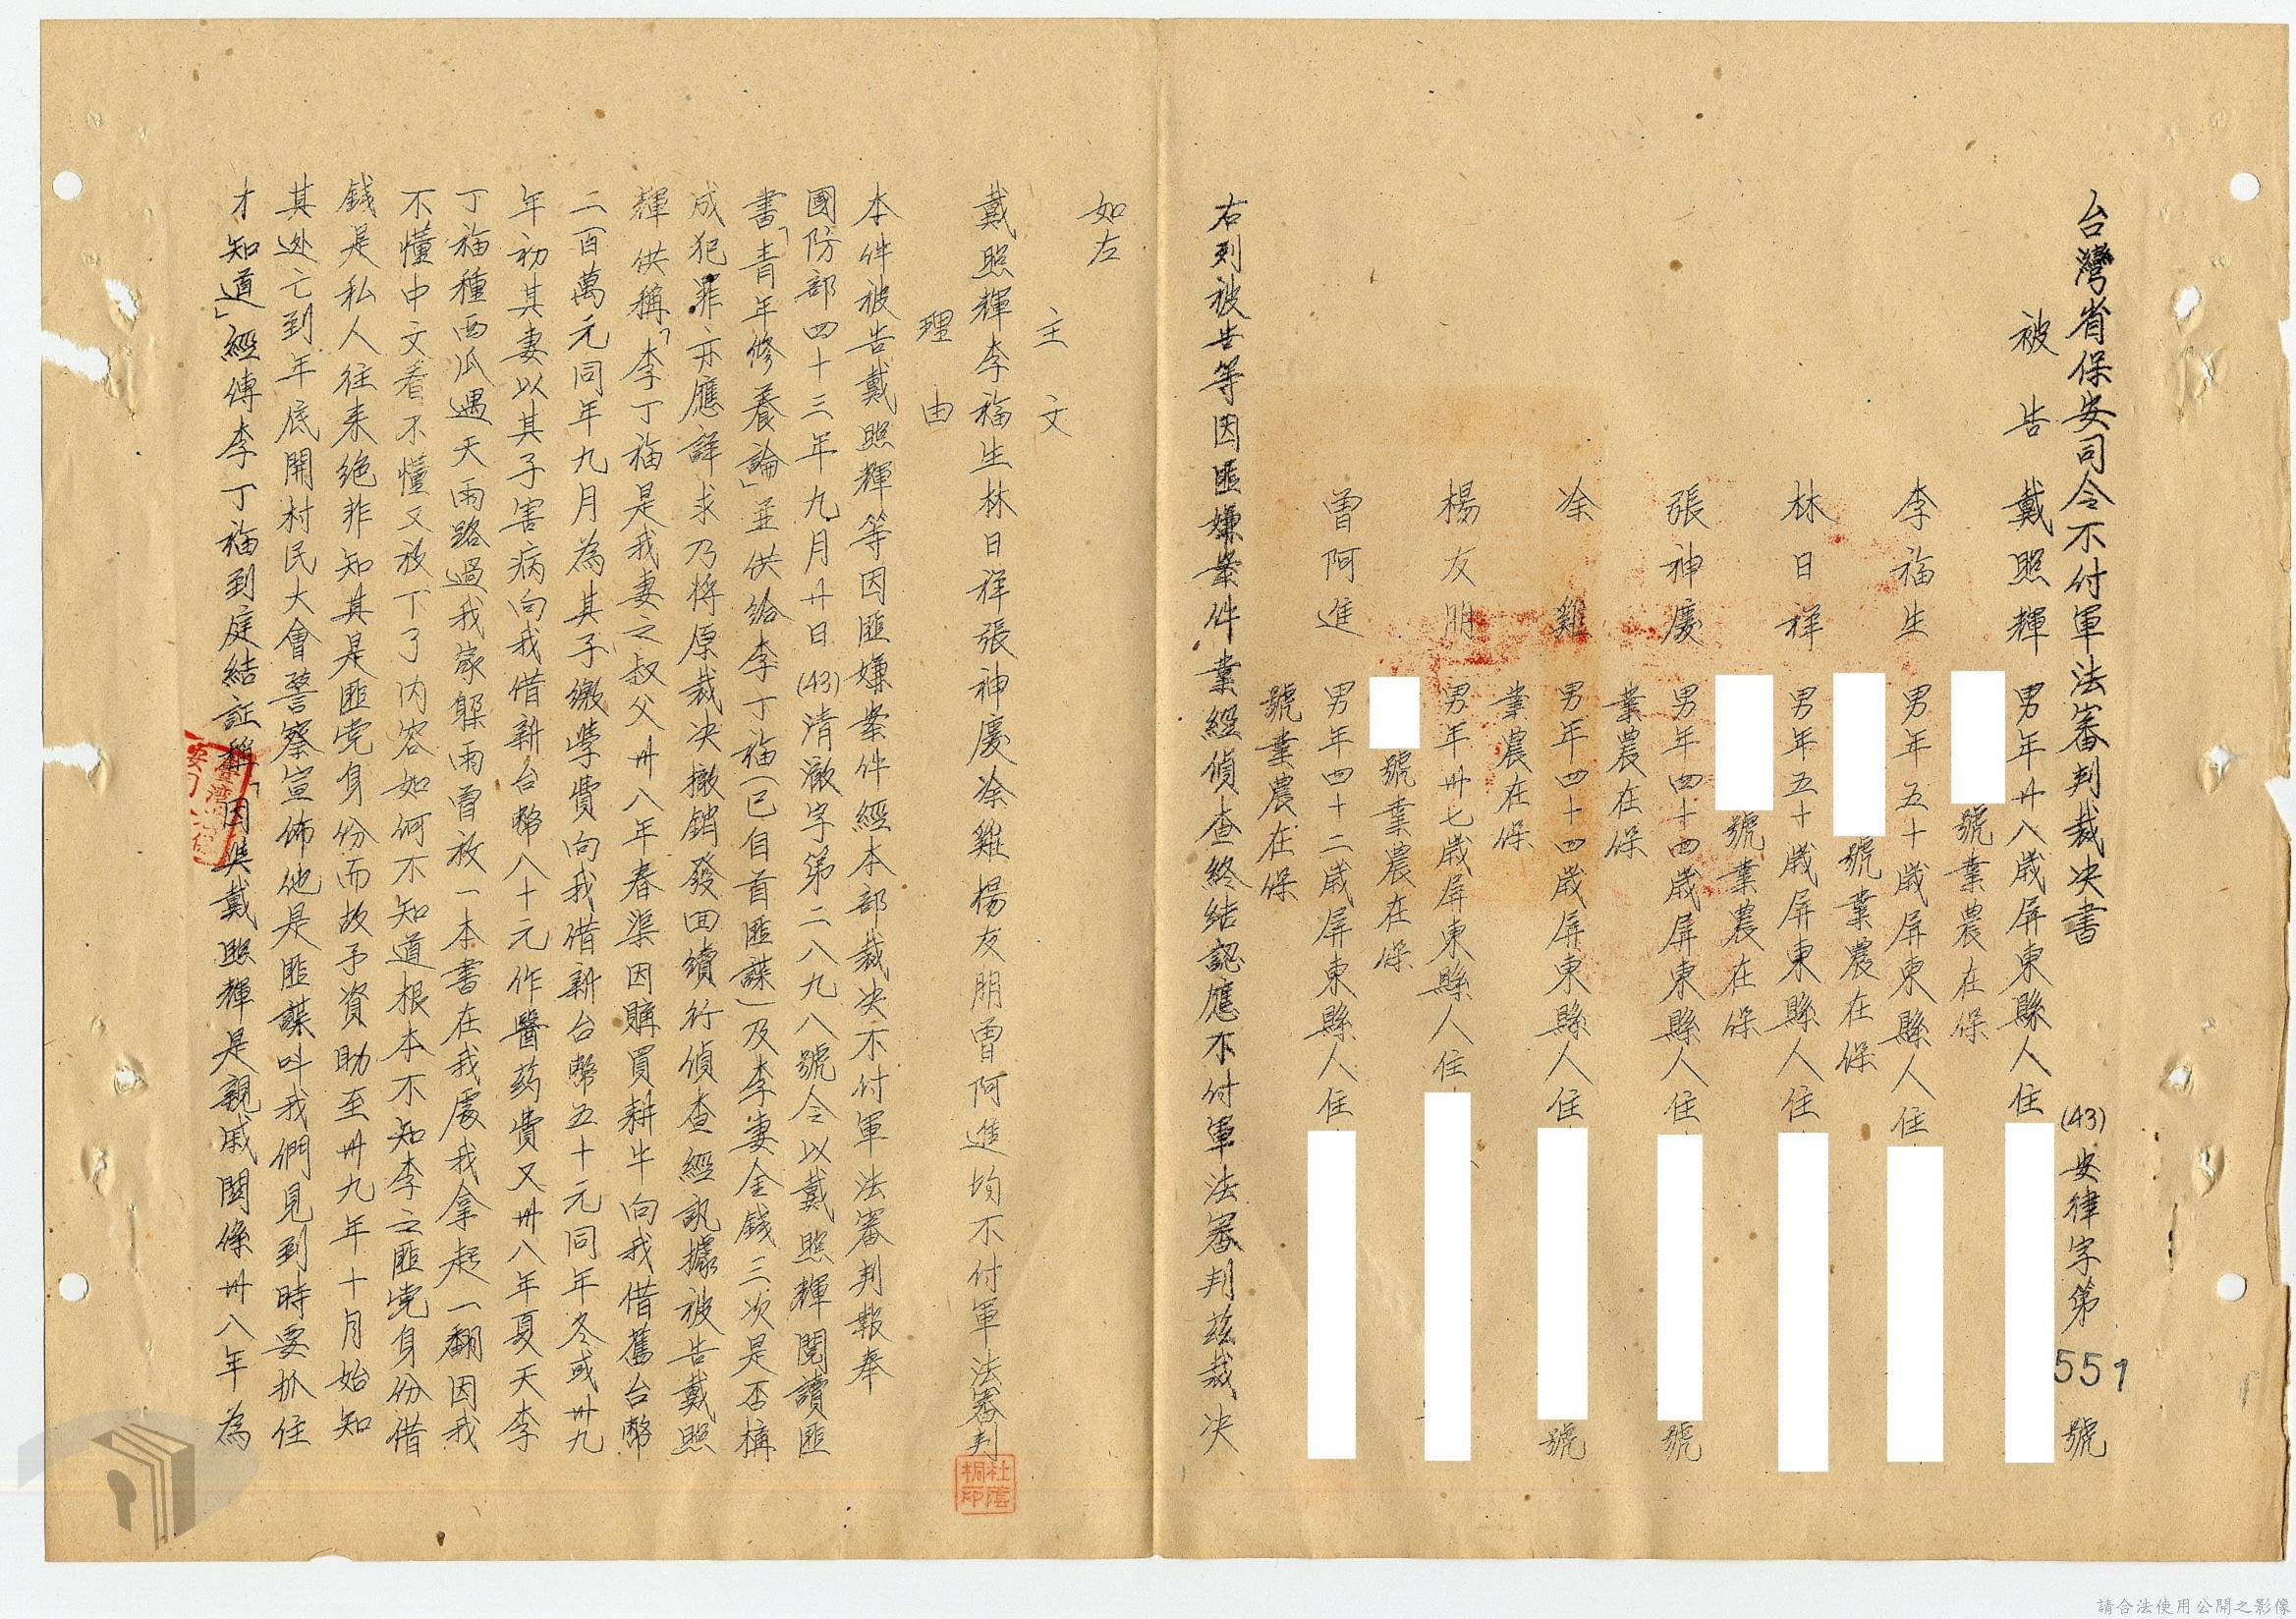 台灣省保安司令不付軍法審判裁决書
(43)安律字第551號
被告 戴照輝 男年廿八歲屏東縣人住
號業農在保
李福生 男年五十歲屏東縣人住
號業農在保
林日祥 男年五十歲屏東縣人住
號業農在保
張神慶 男年四十四歲屏東縣人住 號
業農在保
涂雞 男年四十四歲屏東縣人住 號
業農在保
楊友朋 男年卅七歲屏東縣人住
號業農在保
曾阿進 男年四十二歲屏東縣人住
號業農在保
右列被告等因匪嫌案件業經偵查終結認應不付軍法審判茲裁决
如左
主文
戴照輝李福生林日祥張神慶涂雞楊友朋曾阿進均不付軍法審判
理由
本件被告戴照輝等因匪嫌案件經本部裁决不付軍法審判報奉
國防部四十三年九月廿日(43)清澈字第二八九八號令以戴照輝閱讀匪
書「青年修養論」並供給李丁福(已自首匪諜)及李妻金錢三次是否構
成犯罪亦應詳求乃將原裁决撤銷發回續行偵查經訊據被告戴照
輝供稱「李丁福是我妻之叔父卅八年春渠因購買耕牛向我借舊台幣
二百萬元同年九月為其子繳學費向我借新台幣五十元同年冬或卅九
年初其妻以其子害病向我借新台幣八十元作醫药費又卅八年夏天李
丁福種西瓜遇天雨路過我家躲雨曾放一本書在我處我拿起一翻因我
不懂中文看不懂又放下了內容如何不知道根本不知李之匪党身份借
錢是私人往来绝非知其是匪党身份而故予資助至卅九年十月始知
其逃亡到年底開村民大會警察宣佈他是匪諜叫我們見到時要抓住
才知道」經傳李丁福到庭結証稱「因與戴照輝是親戚関係卅八年為
杜蔭桐印
請合法使用公開之影像